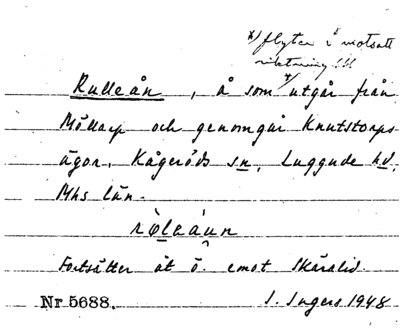 x) flyter i motsatt
riktning !!!
Rulleån, å som x) utgår från
Möllarp och genomgår Knutstorps
ägor, Kågeröds sn, Luggude hd,
Mhs län.
Fortsätter åt ö. emot Skäralid.
Nr 5688. I. Ingers 1948